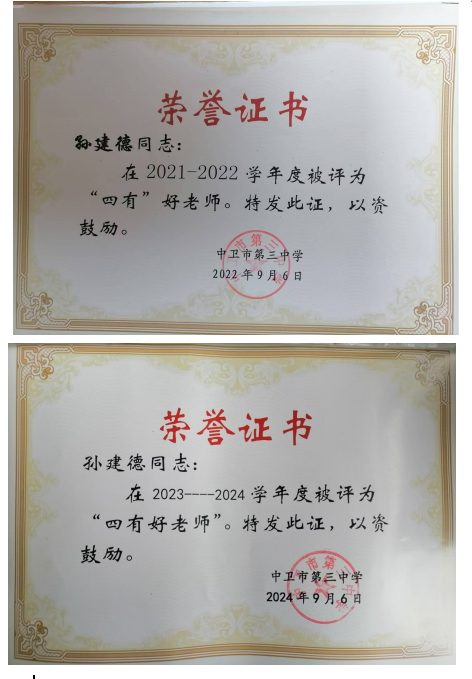 荣誉证书
孙建德同志：
在 2021-2022 学年度被评为
“四有”好老师。特发此证，以资
鼓励。
中卫市第三中学
2022 年 9 月 6 日
荣誉证书
孙建德同志：
在 2023----2024 学年度被评为
“四有好老师”。特发此证，以资
鼓励。
中卫市第三中学
2024 年 9 月 6 日